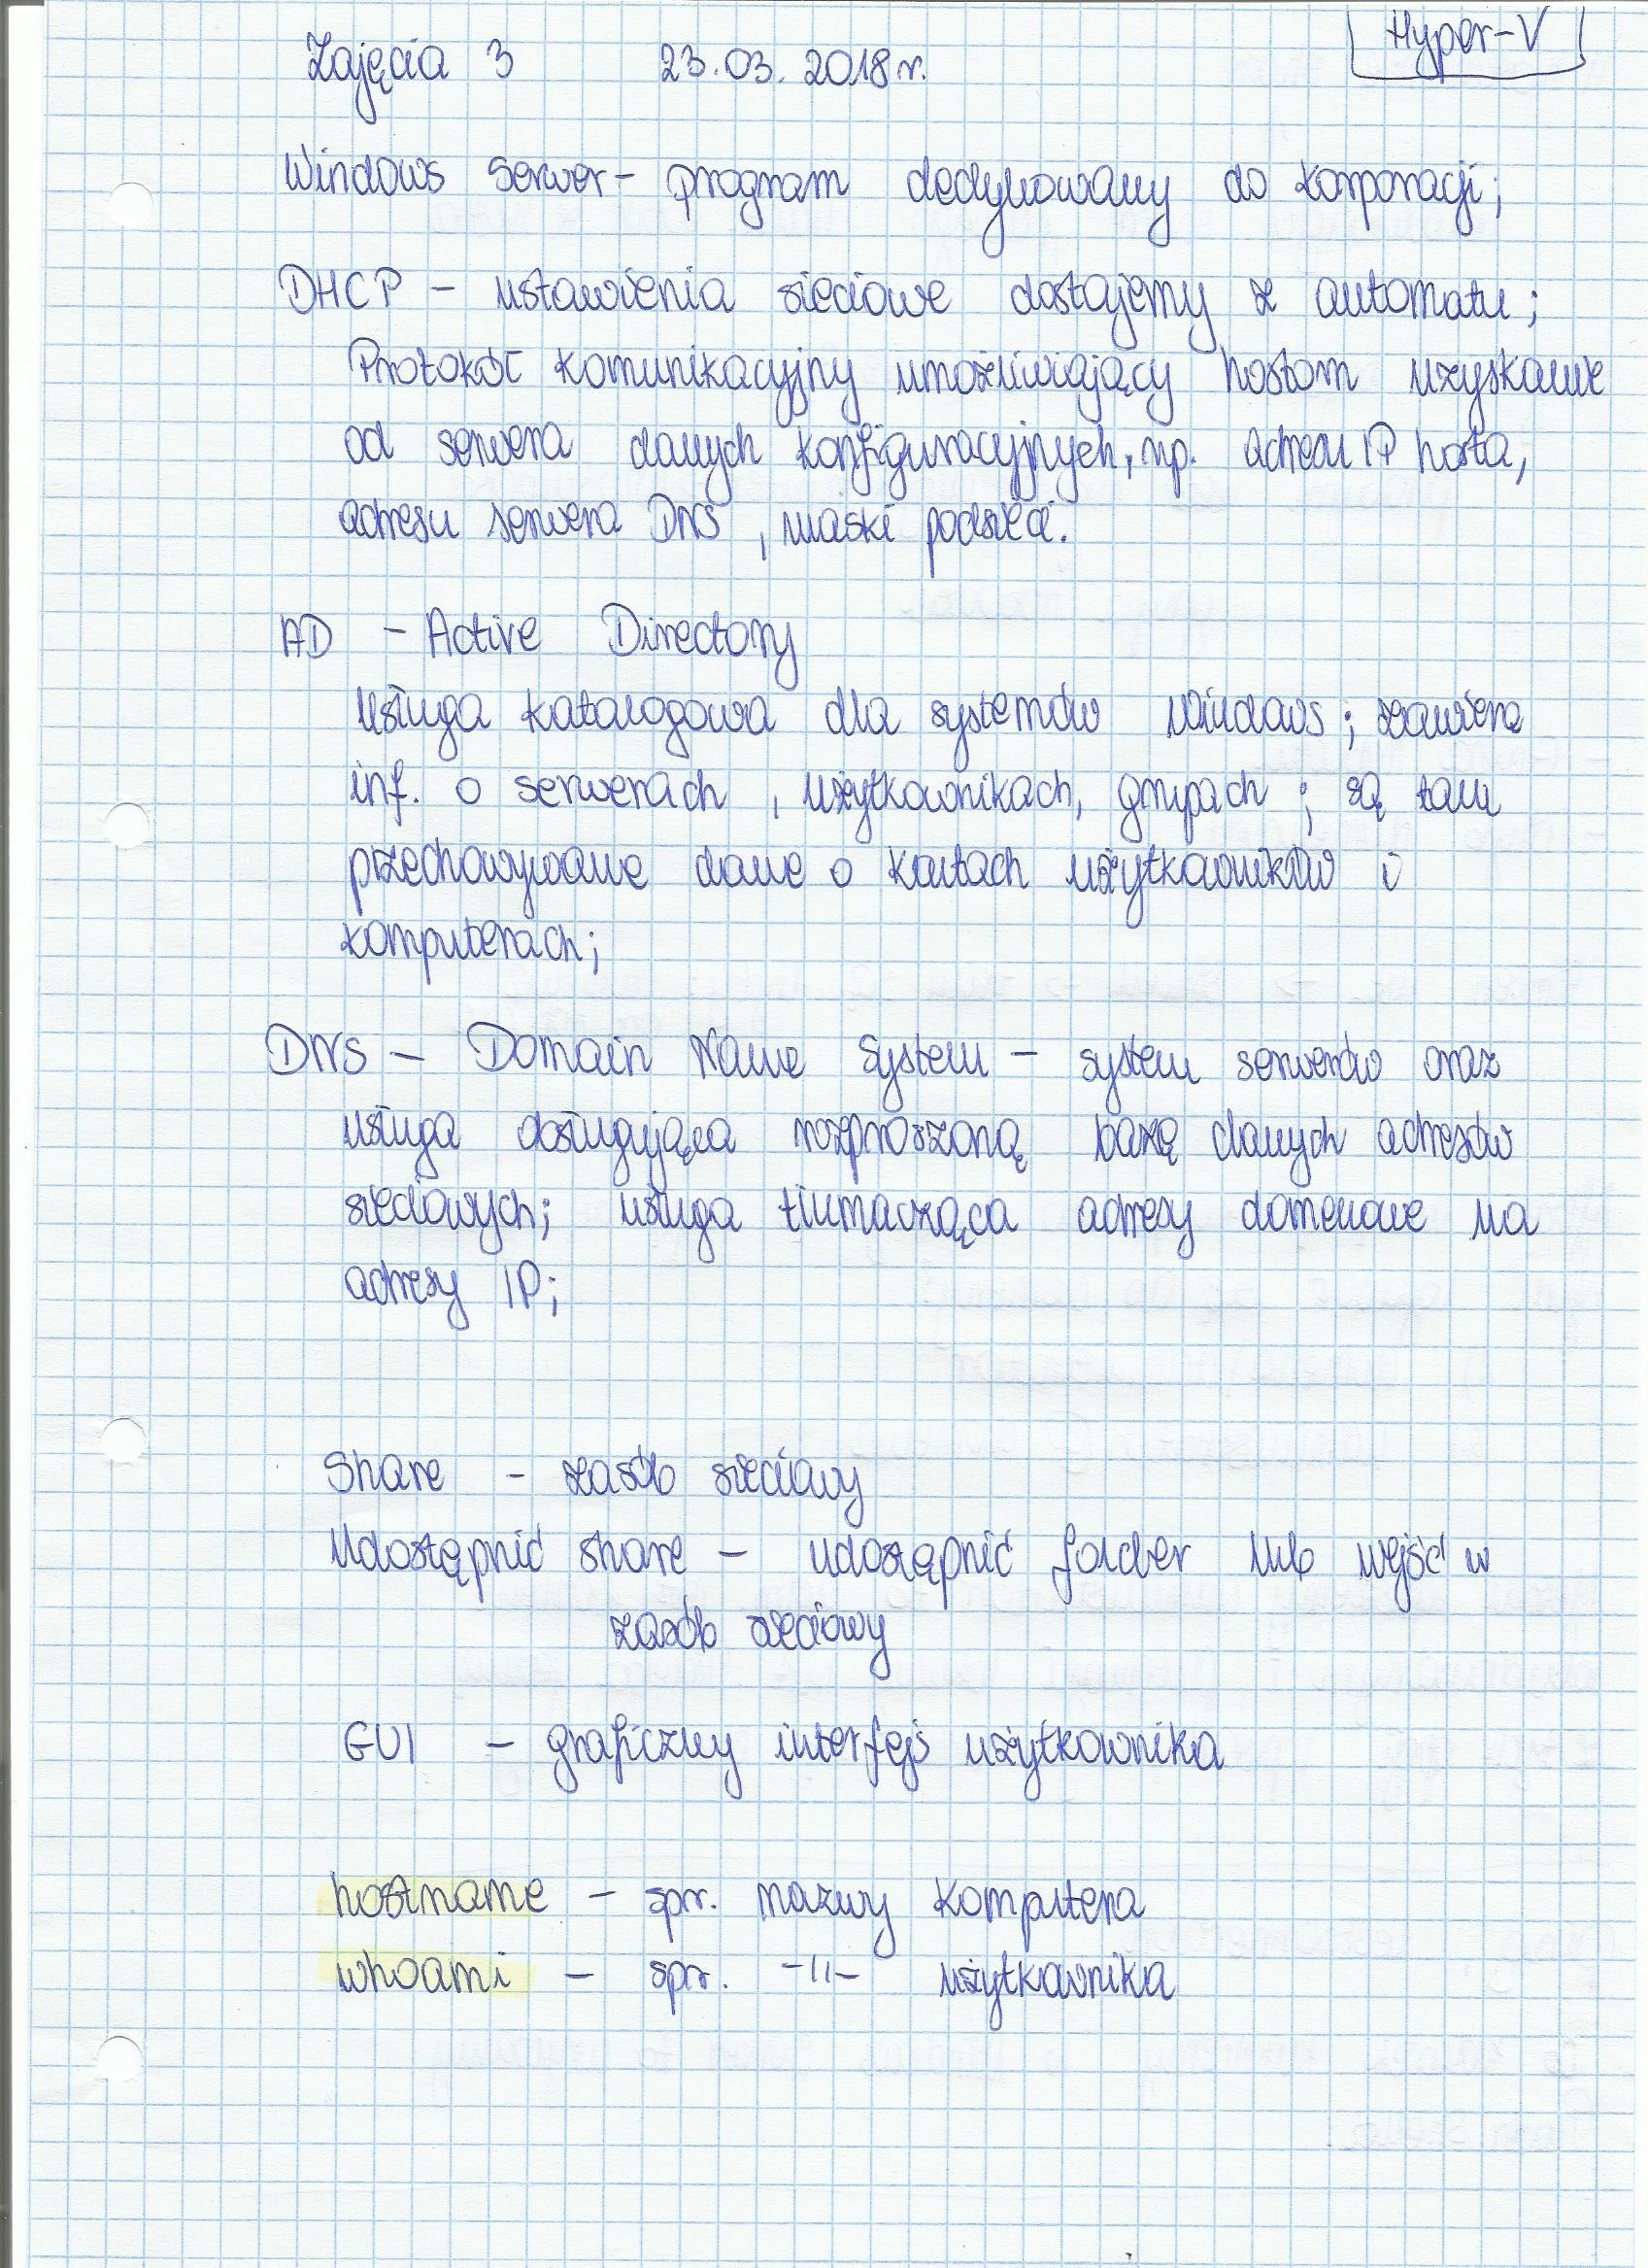 Zajęcia 3 23.03.2018r. Hyper-V
Windows Serwer - program dedykowany do korporacji;
DHCP - ustawienia sieciowe dostajemy z automatu;
Protokół komunikacyjny umożliwiający hostom uzyskanie
od serwera danych konfiguracyjnych, np. adresu IP hosta,
adresu serwera DNS, maski podsieci.
AD - Active Directory
Usługa katalogowa dla systemów Windows; zawiera
inf. o serwerach, użytkownikach, grupach; są tam
przechowywane dane o kontach użytkowników i
komputerach;
DNS - Domain Name System - system serwerów oraz
usługa obsługująca rozproszoną bazę danych adresów
sieciowych; usługa tłumacząca adresy domenowe na
adresy IP;
Share - zasób sieciowy
Udostępnić share - udostępnić folder lub wejść w
zasób sieciowy
GUI - graficzny interfejs użytkownika
hostname - spr. nazwy komputera
whoami - spr. -||- użytkownika